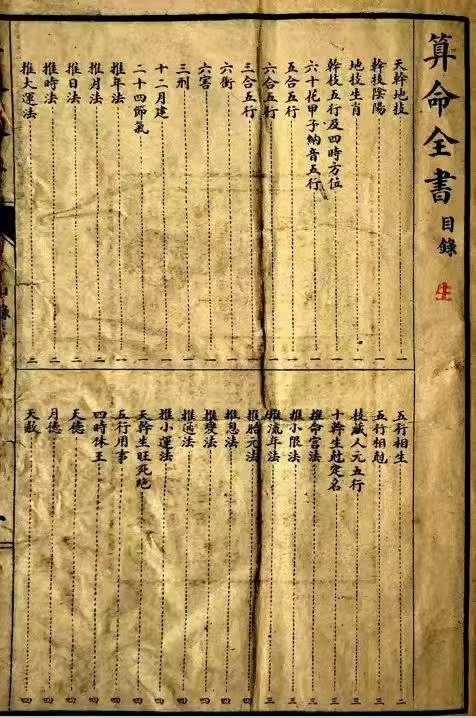 算命全書 目錄
生
天幹地技 一
幹技陰陽 一
地技生肖 一
幹技五行及四時方位 一
六十花甲子納音五行 一
五合五行 一
六合五行 一
三合五行 一
六衝 一
六害 一
三刑 一
十二月建 一
二十四節氣 一
推年法 一
推月法 二
推日法 二
推時法 二
推大運法 二
五行相生 二
五行相尅 二
技藏人元五行 三
十幹生尅定名 三
推命宮法 三
推小限法 三
推流年法 三
推胎元法 四
推息法 四
推變法 四
推通法 四
推小運法 四
天幹生旺死絕 四
五行用事 四
四時休王 四
天德 四
月德 四
天赦 四